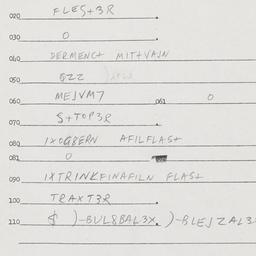 020 FLES+3R
030 O
040 DERMENC+ MIT+VAJN
050 OZZ
060 MEJVM7 061 O
070 S+TOP3R
080 1XOG8ERN AFILFLAS+
081 O
090 1XTRINKFINAFILN FLAS+
100 TRAXT3R
110 $ )-BUL8BAL3X. )-BLEJZAL3